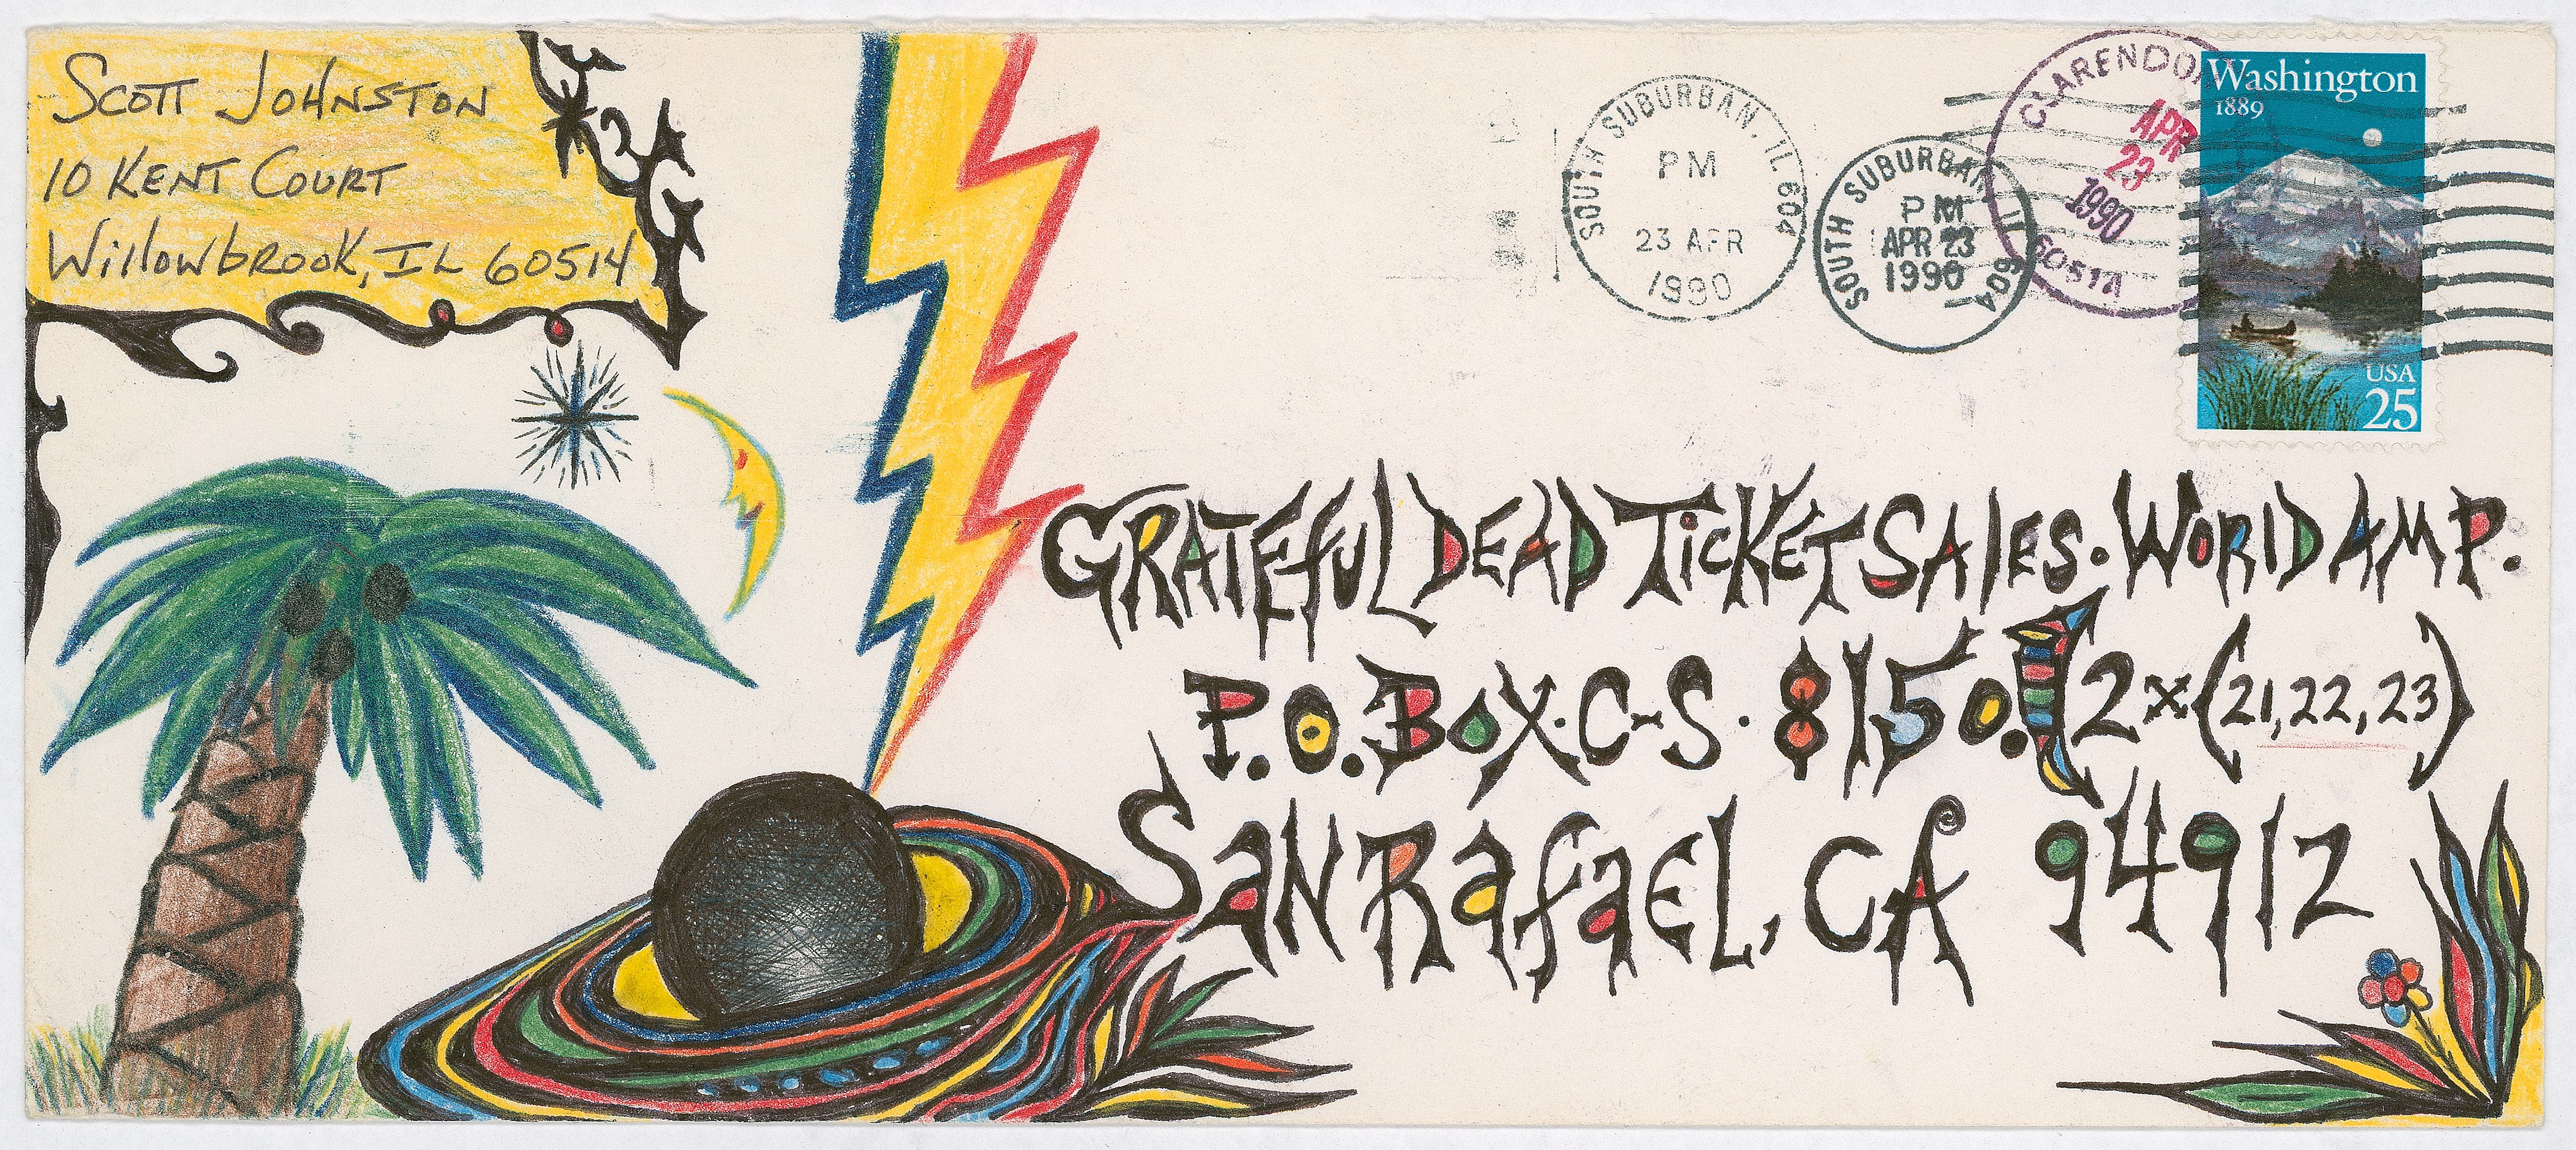 Scott Johnston
10 Kent Court
Willowbrook, IL 60514
SOUTH SUBURBAN, IL 604
PM
23 APR
1990
SOUTH SUBURBAN IL 604
PM
APR 23
1990
CLARENDON
APR
23
1990
60514
Washington
1889
USA
25
GRATEfUL DEAD TicKET SAlES. WORlD AMP.
P.O. BoX. C-S. 8150. 2x(21,22,23)
SaN RafaEL, CA 94912